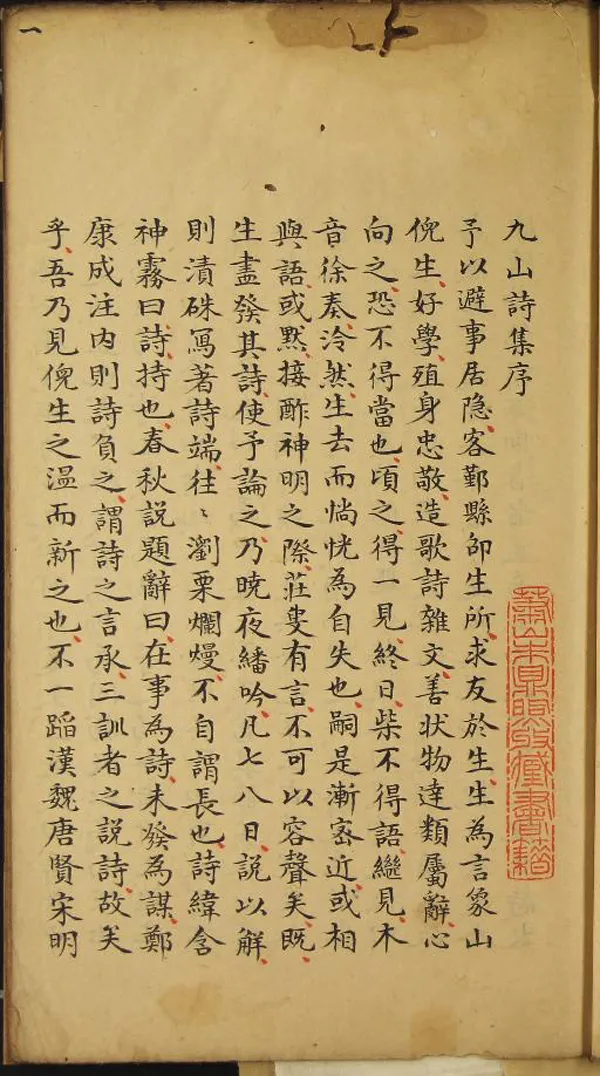 一
九山詩集序
予以避事居隐客鄞縣邵生所求友於生生為言象山
倪生好學殖身忠敬造歌詩雜文善状物達類屬辭心
向之恐不得當也頃之得一見終日柴不得語繼見木
音徐奏泠然生去而惝恍為自失也嗣是漸宻近或相
與語或黙接酢神明之際莊叟有言不可以容聲矣既
生盡發其詩使予論之乃曉夜繙吟凡七八日說以觧
則漬硃寫著詩端往〻瀏栗爛熳不自謂長也詩緯含
神霧曰詩持也春秋説題辭曰在事為詩未發為謀鄭
康成注内則詩負之謂詩之言承三訓者之説詩故矣
乎吾乃見倪生之温而新之也不一蹈漢魏唐賢宋明
蕭山朱鼎煦收藏書籍